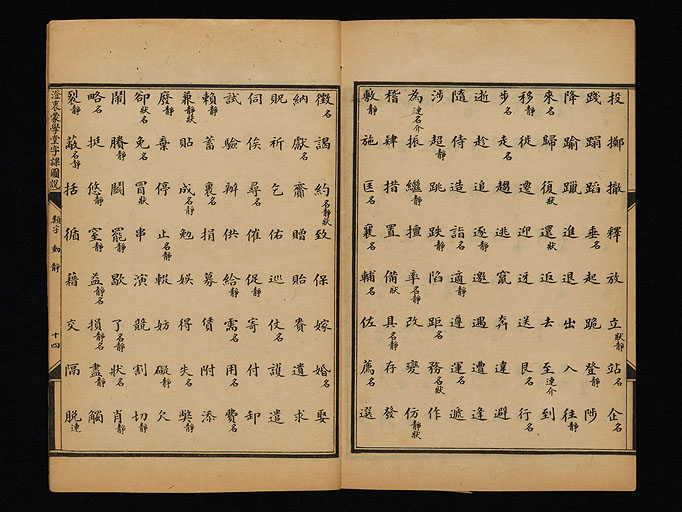 投擲撤釋放立狀靜站名企名
踐蹋蹈垂名起跪登靜陟
降踰躐進退出入往靜
來名歸復狀還狀返去至連介到
移靜徙遷迎迓送艮名行名
步名走名趨逃竄奔違避
逝赴追逐靜邀遇遭逢
隨侍造詣名適靜遵運名遞
涉超靜跳跌靜陷距名務名狀作
為連名介振繼靜擅率名靜改變仿靜狀
稽肆措置備狀具名靜存發
敷靜施匡名襄名輔名佐薦名選
徵名謁約名靜狀致保嫁婚名娶
納獻名齎贈貽賚遺求
貺祈乞佑巡仗名護遣
伺俟尋名催促靜寄付卸
試驗辦供給靜需名用名費名
賴靜蓄裹名捐募賃附添
兼靜狀貼成名靜勉娛得失名弊靜
廢靜棄停止名靜輟妨礙靜欠
卻狀名免名冒狀串演競割切靜
鬧賸靜鬭罷靜歇了名靜狀名肖靜
略名挺悠靜窒靜益靜名損靜名盡靜觸
裂靜蔽名靜括循藉交隔脫連
澄衷蒙學堂字課圖說
類字 動靜
十四